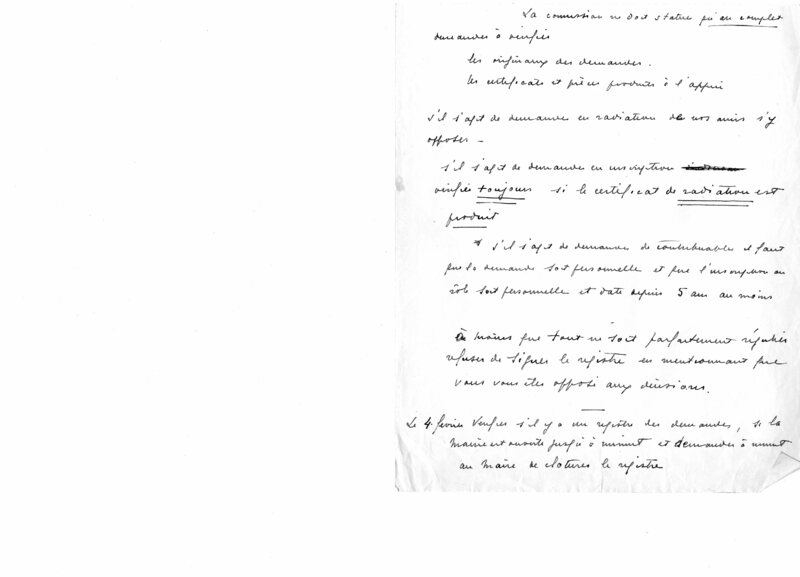 La commission ne doit statuer qu'au complet
demander à vérifier
les originaux des demandes.
les certificats et pièces produits à l'appui
s'il s'agit de demandes en radiation de nos amis s'y
opposer –
s'il s'agit de demandes en inscription
vérifier toujours si le certificat de radiation est
produit
s'il s'agit de demandes de contribuables il faut
que la demande soit personnelle et que l'inscription au
rôle soit personnelle et date depuis 5 ans au moins
à moins que tout ne soit parfaitement régulier
refuser de signer le registre en mentionnant que
vous vous êtes opposé aux décisions.
Le 4 février Vérifier s'il y a un registre des demandes, si la
Mairie est ouverte jusqu'à minuit et demander à minuit
au Maire de clôturer le registre